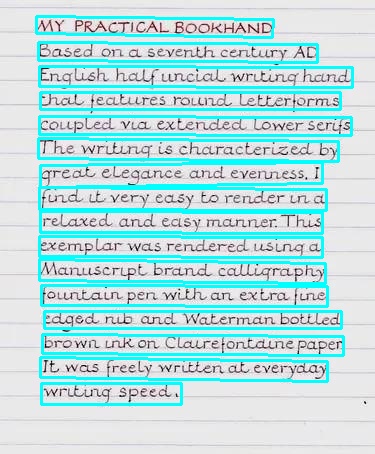 MY PRACTICAL BOOKHAND
Based on a seventh century AD
English half uncial writing hand
that features round letterforms
coupled via extended lower serifs
The writing is characterized by
great elegance and evenness. I
find it very easy to render in a
relaxed and easy manner. This
exemplar was rendered using a
Manuscript brand calligraphy
fountain pen with an extra fine
edged nib and Waterman bottled
brown ink on Clairefontaine paper
It was freely written at everyday
writing speed.